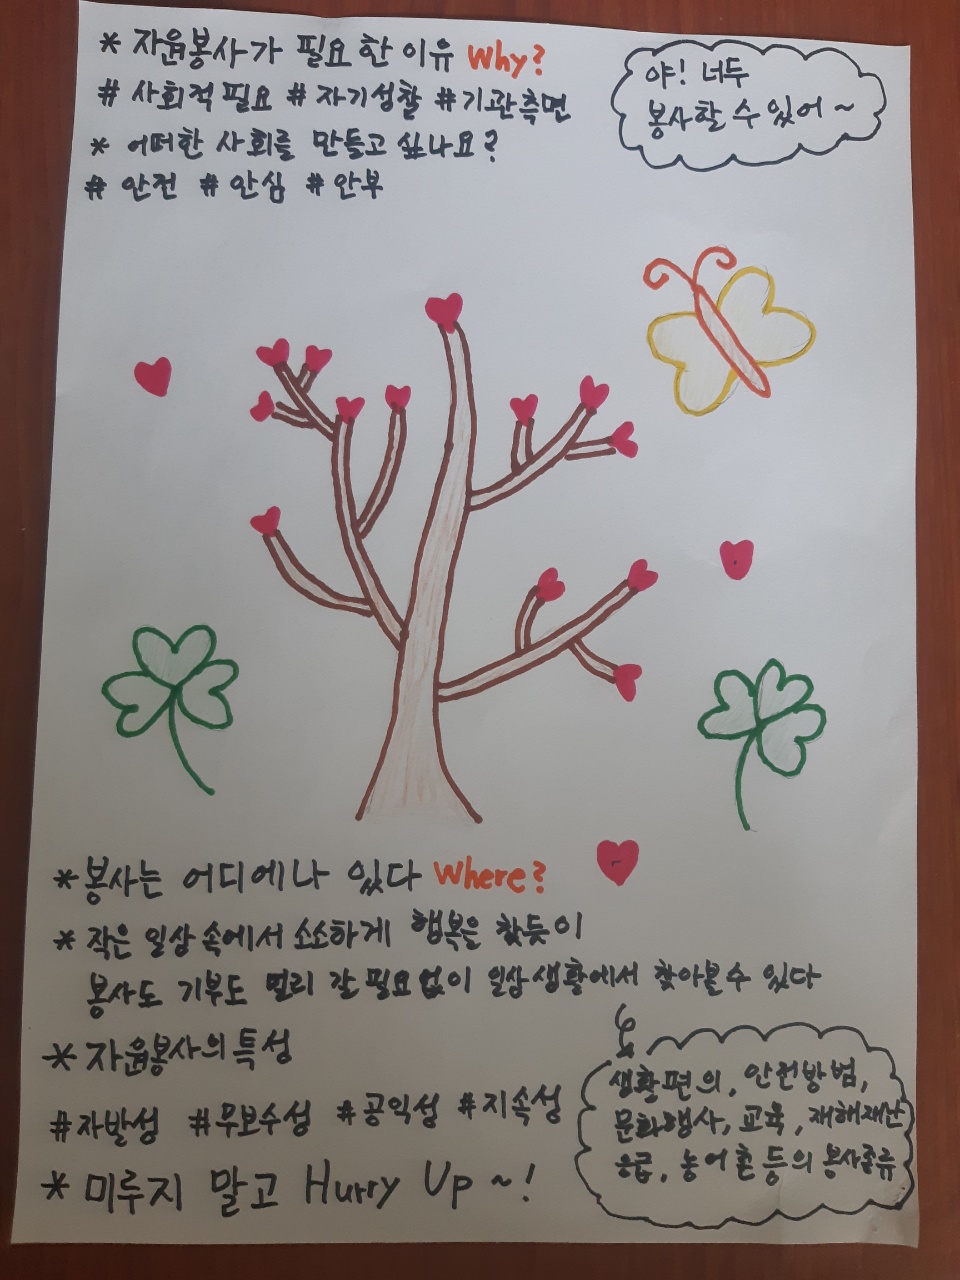 * 자원봉사가 필요한 이유 Why?
# 사회적필요 # 자기성찰 #기관측면
* 어떠한 사회를 만들고 싶나요?
# 안전 # 안심 # 안부
야! 너두
봉사할 수 있어 ~
* 봉사는 어디에나 있다 Where?
* 작은 일상 속에서 소소하게 행복을 찾듯이
봉사도 기부도 멀리 갈 필요없이 일상생활에서 찾아볼 수 있다
생활편의, 안전방범,
문화행사, 교육, 재해재난
응급, 농어촌 등의 봉사종류
* 자원봉사의 특성
#자발성 #무보수성 #공익성 #지속성
* 미루지 말고 Hurry Up ~!